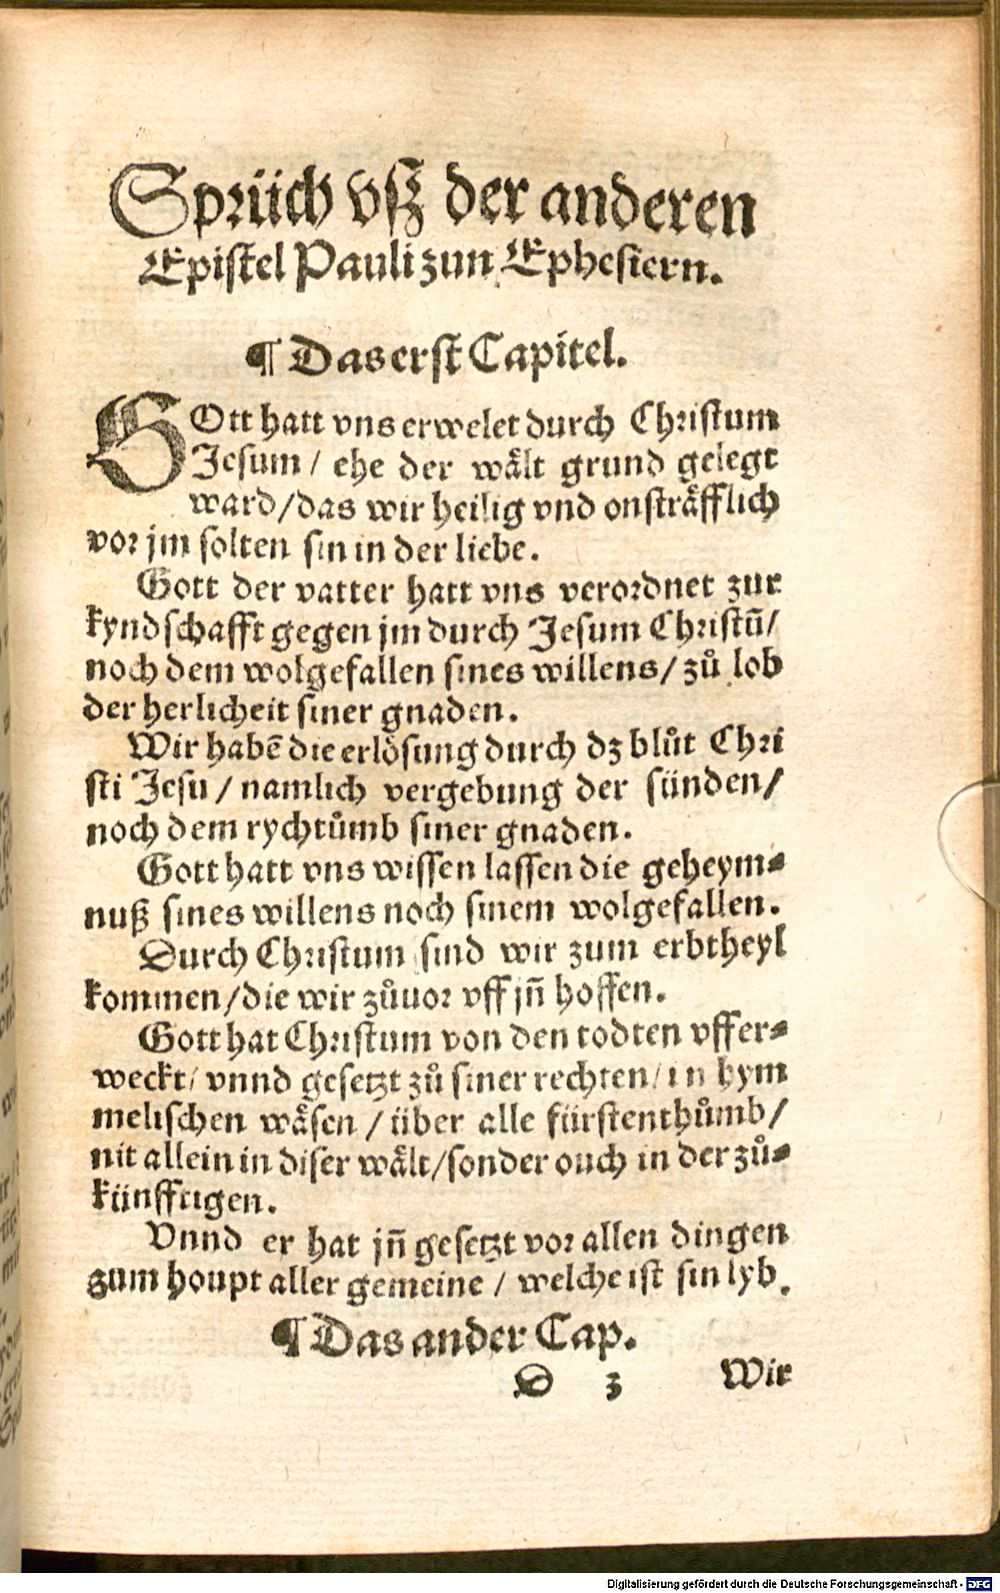 Sprüch vß der anderen
Epistel Pauli zun Ephesiern.
¶ Das erst Capitel.
GOtt hatt vns erwelet durch Christum
Jesum / ehe der wält grund gelegt
ward / das wir heilig vnd onsträfflich
vor jm solten sin in der liebe.
Gott der vatter hatt vns verordnet zur
kyndschafft gegen jm durch Jesum Christū /
noch dem wolgefallen sines willens / zů lob
der herlicheit siner gnaden.
Wir habē die erlösung durch dz blůt Chri
sti Jesu / namlich vergebung der sünden /
noch dem rychtůmb siner gnaden.
Gott hatt vns wissen lassen die geheym⸗
nuß sines willens noch sinem wolgefallen.
Durch Christum sind wir zum erbtheyl
kommen / die wir zůuor vff jn̄ hoffen.
Gott hat Christum von den todten vffer⸗
weckt / vnnd gesetzt zů siner rechten / in hym
melischen wäsen / über alle fürstenthůmb /
nit allein in diser wält / sonder ouch in der zů⸗
künfftigen.
Vnnd er hat jn̄ gesetzt vor allen dingen
zum houpt aller gemeine / welche ist sin lyb.
¶ Das ander Cap.
D 3 Wir
Digitalisierung gefördert durch die Deutsche Forschungsgemeinschaft - DFG